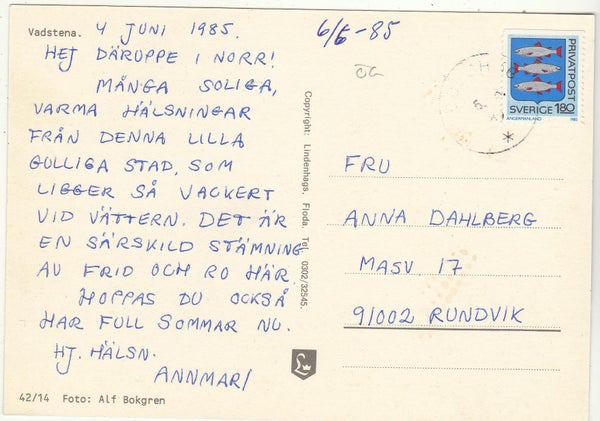 Vadstena. 4 JUNI 1985.
HEJ DÄRUPPE I NORR!
MÅNGA SOLIGA,
VARMA HÄLSNINGAR
FRÅN DENNA LILLA
GULLIGA STAD, SOM
LIGGER SÅ VACKERT
VID VÄTTERN. DET ÄR
EN SÄRSKILD STÄMNING
AV FRID OCH RO HÄR.
HOPPAS DU OCKSÅ
HAR FULL SOMMAR NU.
HJ. HÄLSN.
ANNMARI
42/14 Foto: Alf Bokgren
Copyright: Lindenhags. Floda. Tel. 0302/32545.
6/6-85
PRIVATPOST
SVERIGE 180
ÅNGERMANLAND
FRU
ANNA DAHLBERG
MASV 17
91002 RUNDVIK